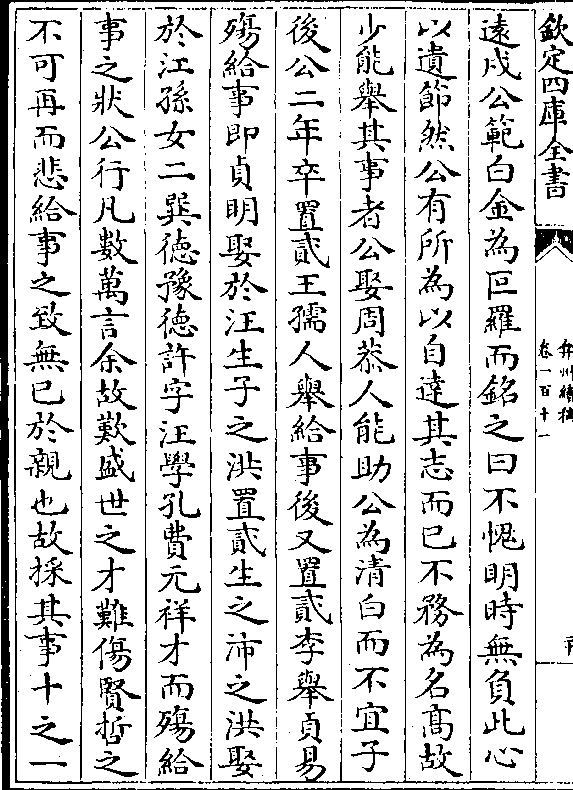 欽定四庫全書
弇州續稿
卷一百十一
遠戍公範白金為叵羅而銘之曰不愧明時無負此心
以遺節然公有所為以自達其志而已不務為名髙故
少能舉其事者公娶周恭人能助公為清白而不宜子
後公二年卒置貳王孺人舉給事後又置貳李舉貞易
殤給事即貞明娶於汪生子之洪置貳生之沛之洪娶
於江孫女二巽徳豫徳許字汪學孔費元祥才而殤給
事之狀公行凡數萬言余故歎盛世之才難傷賢哲之
不可再而悲給事之致無已於親也故採其事十之一